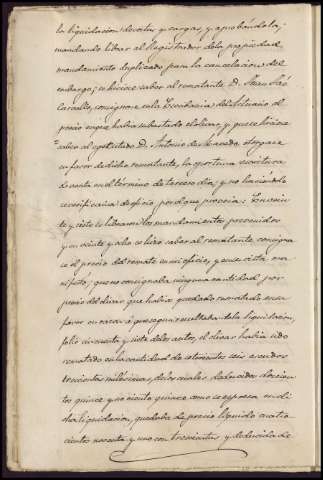 la liquidacion de costas y cargas y aprobandola;
mandando librar al Registrador de la propiedad
mandamiento duplicado para la cancelacion del
embargo; se hiciese saber al rematante D. Juan
Caravaca, consignase en la Escribania del actuario el
precio en que habia subastado el olivar, y que se hiciese
saber al ejecutado D. Antonio de Aceveda otorgase
en favor de dicho rematante, la oportuna escritura
de venta en el término de tercero dia, y no haciendolo
se verificaria de oficio, por el que proveia: En vein
te y siete se libraron los mandamientos prevenidos
y en veinte y ocho se hizo saber al rematante, consigna
se el precio del remate en mi oficio, y en su vista, ma
nifestó, que no consignaba ninguna cantidad por
precio del olivar que habia quedado rematado en su
favor en razon á que segun resultaba de la liquidacion
folio cincuenta y siete de los autos, el olivar habia sido
rematado en la cantidad de setecientos seis escudos
trescientas milésimas, de los cuales deducidos doscien
tos quince y no ciento quince como se espresa en di
cha liquidacion, quedaba de precio líquido cuatro
cientos noventa y uno con trescientas y deducida de